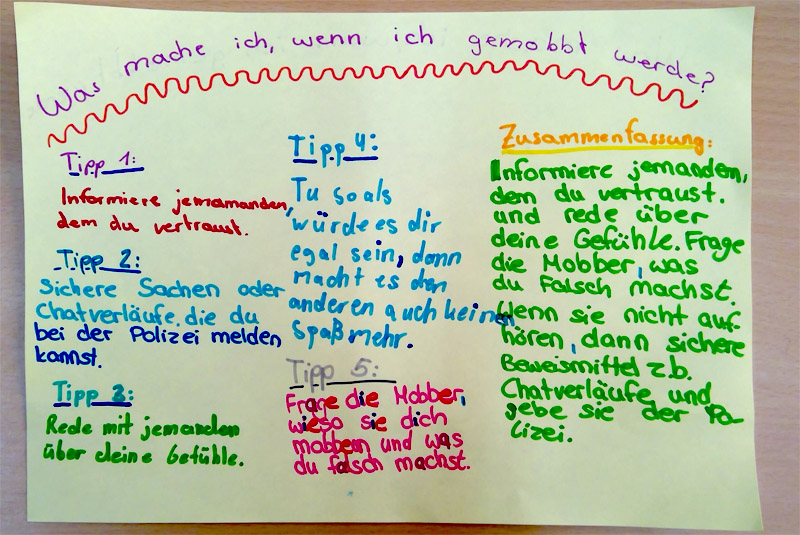 Was mache ich, wenn ich gemobbt werde?
Tipp 1:
Informiere jemamanden,
dem du vertraust.
Tipp 2:
Sichere Sachen oder
Chatverläufe, die du
bei der Polizei melden
kannst.
Tipp 3:
Rede mit jemanden
über deine Gefühle.
Tipp 4:
Tu so als
würde es dir
egal sein, dann
macht es den
anderen auch keinen
Spaß mehr.
Tipp 5:
Frage die Mobber,
wieso sie dich
mobben und was
du falsch machst.
Zusammenfassung:
Informiere jemanden,
dem du vertraust.
und rede über
deine Gefühle. Frage
die Mobber, was
du falsch machst.
Wenn sie nicht auf-
hören, dann sichere
Beweismittel z.b.
Chatverläufe und
gebe sie der Po-
lizei.